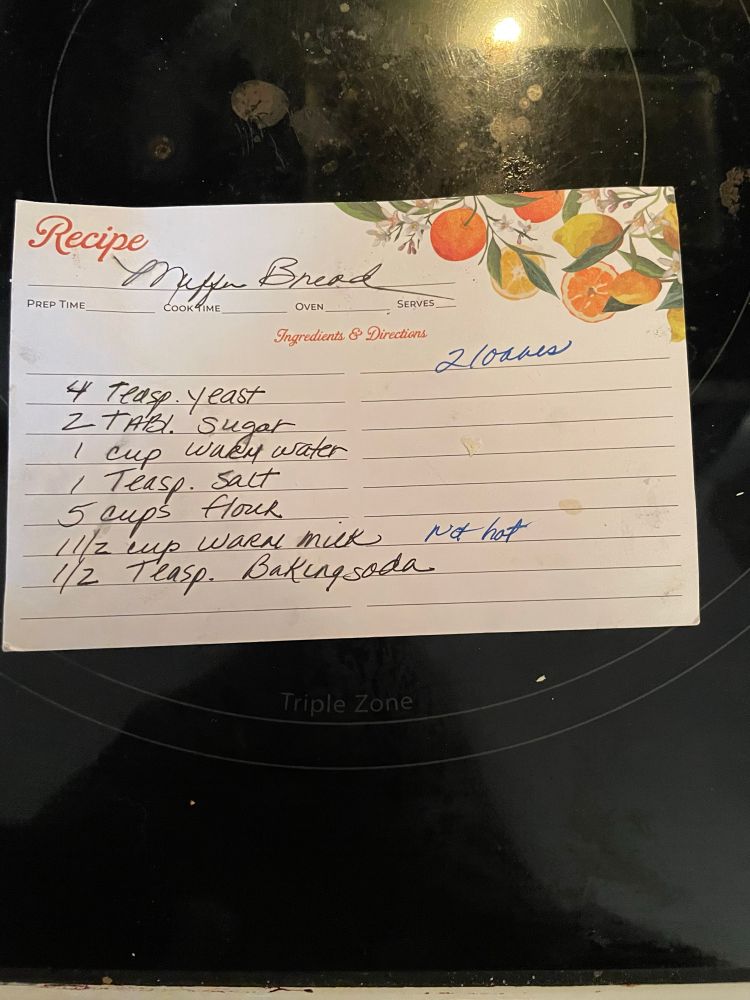 Recipe
Muffin Bread
PREP TIME COOK TIME OVEN SERVES
Ingredients & Directions
2 loaves
4 Teasp. yeast
2 TABL. sugar
1 cup warm water
1 Teasp. salt
5 cups flour
1 1/2 cup warm milk Not hot
1/2 Teasp. Baking soda
Triple Zone